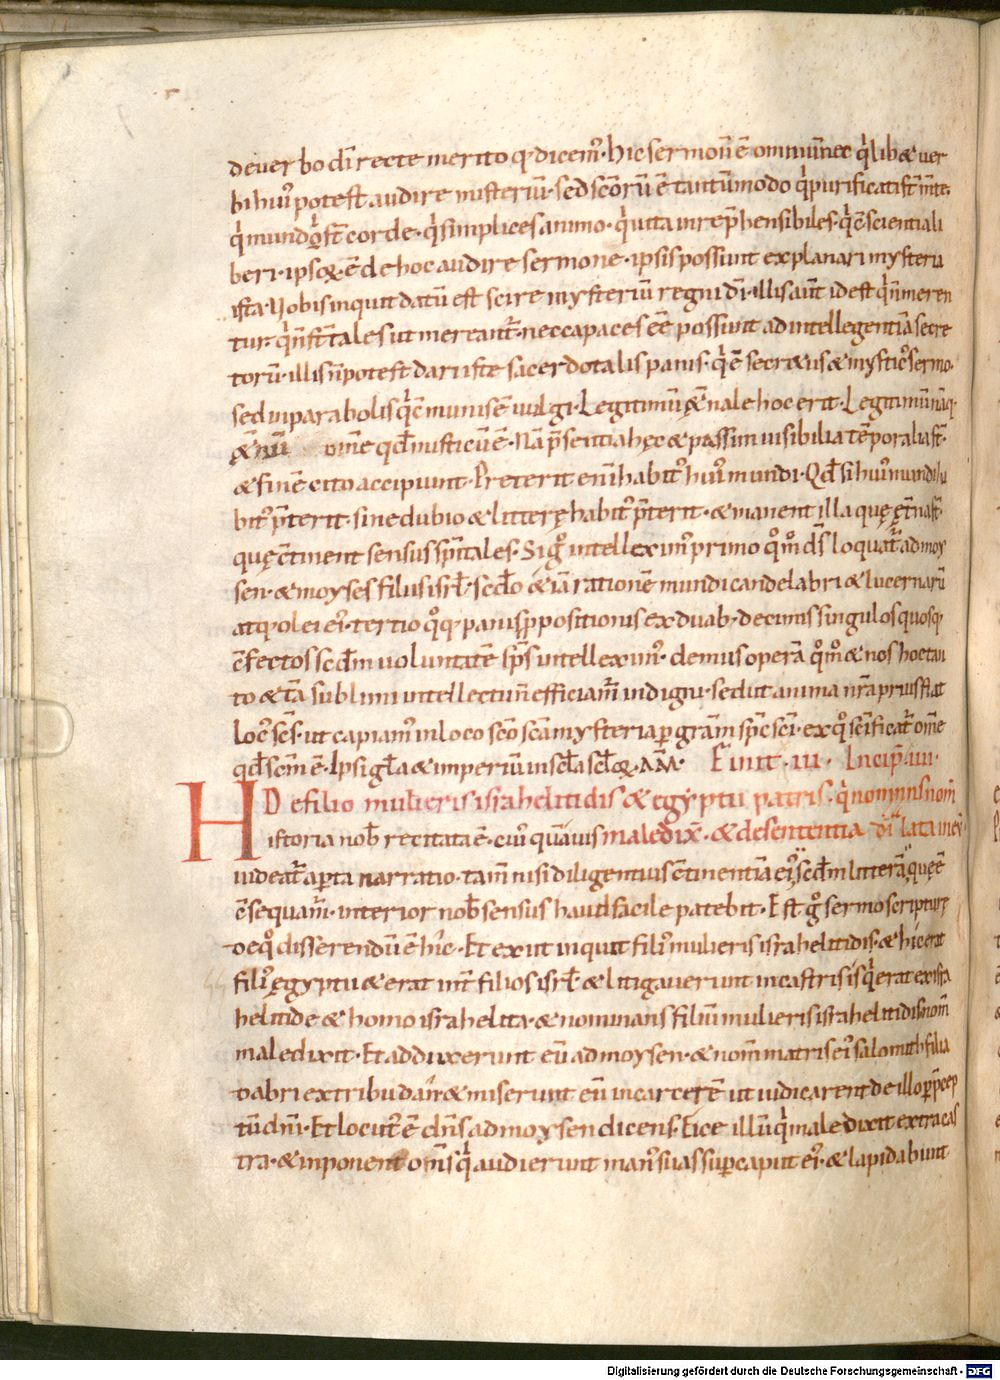 deuerbo dī recte merito qđ dicem᾽· hic sermo n̄ ē omniū nec q̍libæ uer
bi hui᾽ potest audire misteriū· sed scōrū ē tantūmodo q̍ purificati st̄ mente
q̍ mundo st̄ corde· q̍ simplices animo· q̍ uita inrep̄hensibiles· q̍ c̄scientia li
beri· ipsoꝝ ē de hoc audire sermone· ipsis possunt explanari mysteria
ista· Uobis inquit datū est scire mysteriū regni dī· illis aūt id est q̍ n̄ meren
tur· q̍ n̄ st̄ tales ut mereant᷑· nec capaces eē possunt ad intellegentiā secre
torū· illis n̄ potest dari iste sacerdotalis panis· q̍ ē secretus & mystic᾽ sermo·
sed in parabolis q̍ c̄munis ē uulgi· Legitimū ęt̄nale hoc erit· Legitimū nāq;
ęt̄nū om̄e qđ misticū ē· Nā p̄sentia hęc & passim uisibilia tēporalia st̄·
& finē cito accipiunt· Preterit enī habit᾽ hui᾽ mundi· Qđ si hui᾽ mundi ha
bit᾽ p̄terit· sine dubio & litterę habit᾽ p̄terit· & manent illa quę ęt̄na st̄·
quę c̄tinent sensus sp̄itales· Si g̊ intellexim᾽ primo q̊m̊ dš loquat᷑ ad moy
sen· & moyses filiis isrł· scđo &iā rationē mundi candelabri & lucernarū
atq; olei ei᾽· tertio q̊q; panis ꝓpositionis ex duab; decimis singulos quosq;
c̄fectos scđm uoluntatē sp̄s intellexim᾽· demus operā q̊m̊ & nos hoc tan
to & tā sublimi intellectu n̄ efficiam᷑ indigni· sed ut anima nr̄a prius fiat
loc᾽ scs̄· ut capiam᾽ in loco scō scā mysteria p̱ grām sp̄c sc̄i· ex q̊ scīficat᷑ om̄e
qđ scm̄ ē· Ipsi glā & imperiū in scła scłoꝝ· AM̄· Finit· III· Incip̄· IIII·
De filio mulieris israhelitidis & egyptii patris· q̍ nominans nom̄
Historia nob̄ recitata ē· cui᾽ quāuis maledix̄· & de sententia dī lata in eū·
uideat᷑ ap̱ta narratio· tam̄ nisi diligentius c̄tinentiā ei᾽ scđm litterā quę ē
c̄sequam᷑· interior nob̄ sensus haud facile patebit· Est g̊ sermo scripturę
de q̊ disserendū ē hic· Et exiit inquit fili᾽ mulieris israhelitidis· & hic erat
fili᾽ ęgyptii & erat int̄ filios isrł· & litigauerunt in castris is q̍ erat ex isra
helitide & homo israhelita· & nominans filiū mulieris israhelitidis nom̄
maledixit· Et adduxerunt eū ad moysen· & nom̄ matris ei᾽ salomith filia
dabri ex tribu dan· & miserunt eū in carcerē ut iudicarent de illo p̱ p̄cep
tū dn̄i· Et locut᾽ ē dn̄s ad moysen dicens· Eice illū q̍ maledixit extra cas
tra· & inponent om̄s q̍ audierunt man᾽ suas sup̱ caput ei᾽· & lapidabunt
Digitalisierung gefördert durch die Deutsche Forschungsgemeinschaft - DFG